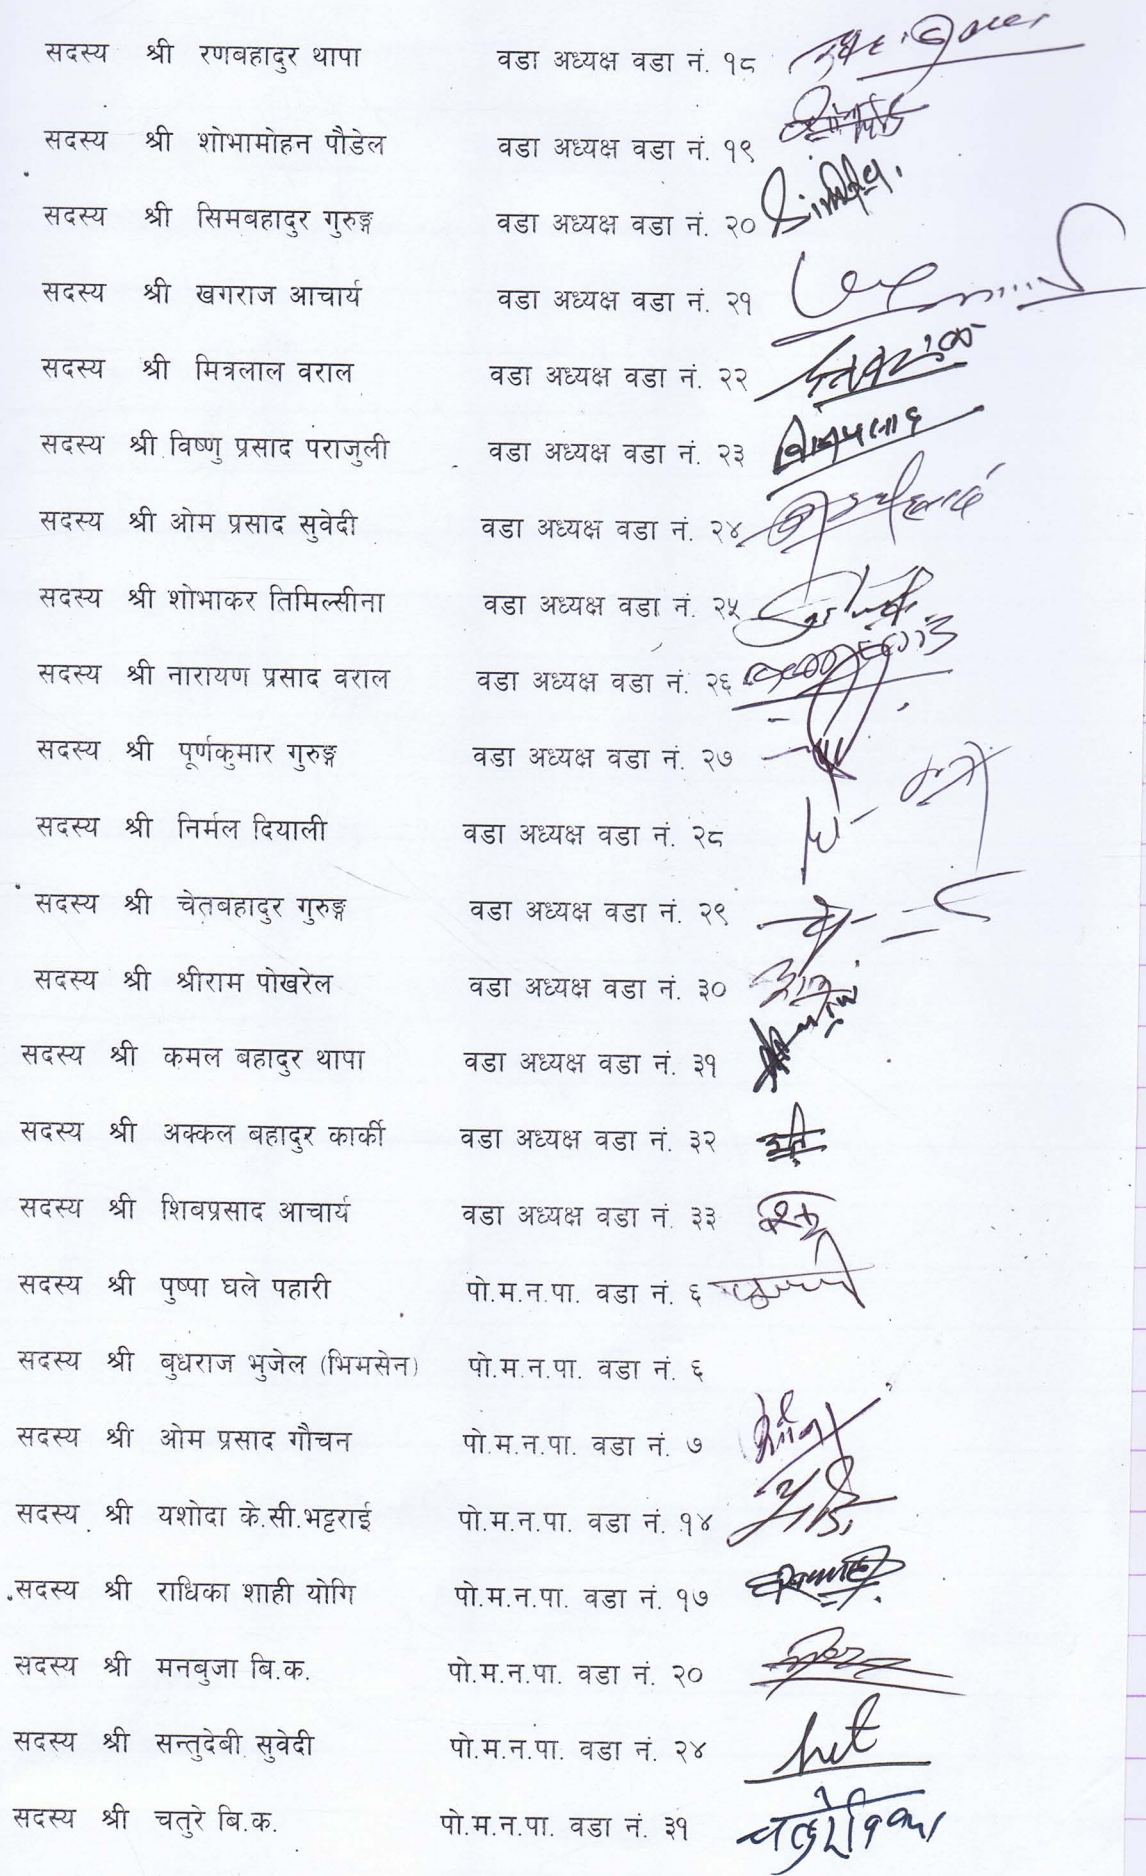 सदस्य श्री रणबहादुर थापा वडा अध्यक्ष वडा नं. १८
सदस्य श्री शोभामोहन पौडेल वडा अध्यक्ष वडा नं. १९
सदस्य श्री सिमबहादुर गुरुङ्ग वडा अध्यक्ष वडा नं. २०
सदस्य श्री खगराज आचार्य वडा अध्यक्ष वडा नं. २१
सदस्य श्री मित्रलाल वराल वडा अध्यक्ष वडा नं. २२
सदस्य श्री विष्णु प्रसाद पराजुली वडा अध्यक्ष वडा नं. २३
सदस्य श्री ओम प्रसाद सुवेदी वडा अध्यक्ष वडा नं. २४
सदस्य श्री शोभाकर तिमिल्सीना वडा अध्यक्ष वडा नं. २५
सदस्य श्री नारायण प्रसाद वराल वडा अध्यक्ष वडा नं. २६
सदस्य श्री पूर्णकुमार गुरुङ्ग वडा अध्यक्ष वडा नं. २७
सदस्य श्री निर्मल दियाली वडा अध्यक्ष वडा नं. २८
सदस्य श्री चेतबहादुर गुरुङ्ग वडा अध्यक्ष वडा नं. २९
सदस्य श्री श्रीराम पोखरेल वडा अध्यक्ष वडा नं. ३०
सदस्य श्री कमल बहादुर थापा वडा अध्यक्ष वडा नं. ३१
सदस्य श्री अक्कल बहादुर कार्की वडा अध्यक्ष वडा नं. ३२
सदस्य श्री शिवप्रसाद आचार्य वडा अध्यक्ष वडा नं. ३३
सदस्य श्री पुष्पा घले पहारी पो.म.न.पा. वडा नं. ६
सदस्य श्री बुधराज भुजेल (भिमसेन) पो.म.न.पा. वडा नं. ६
सदस्य श्री ओम प्रसाद गौचन पो.म.न.पा. वडा नं. ७
सदस्य श्री यशोदा के.सी.भट्टराई पो.म.न.पा. वडा नं. १४
सदस्य श्री राधिका शाही योगि पो.म.न.पा. वडा नं. १७
सदस्य श्री मनबुजा बि.क. पो.म.न.पा. वडा नं. २०
सदस्य श्री सन्तुदेबी सुवेदी पो.म.न.पा. वडा नं. २४
सदस्य श्री चतुरे बि.क. पो.म.न.पा. वडा नं. ३१